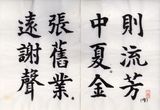 則流芳
中夏金
張舊業
遠謝聲